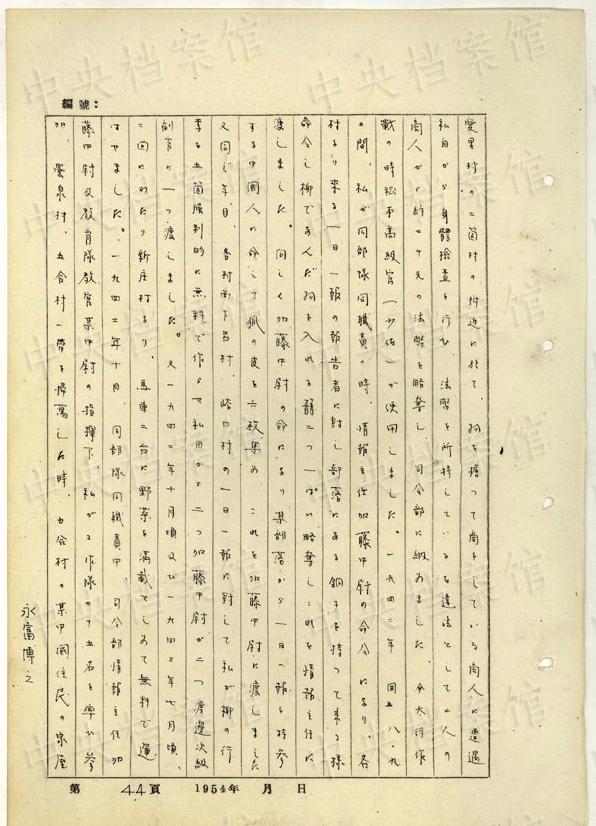 編號:
愛里村の二箇村の附近に於て、網を擔って商をしている商人に遭遇
私自から身體検査を行ひ、法幣を所持しているを違法として二人の
商人から約二千元の法幣を略奪し、司令部に納めました。今大行作
戦の時総高級官(少佐)が使用しました。一九四二年 八・九
の間、私が同部隊同職責の時、情報主任加藤中尉の命令により、各
村より来る一日一報の報告者に対し部落にある銅を持って来る様
命令し柳であんだ網を入れる籠二つ一ぱい略奪しこれを情報主任に
渡しました。同じく加藤中尉の命により某部落から一日一報を時参
する中國人に命じて狐の皮を六枚集め これを加藤中尉に渡しました
又同じ年、各村南下呂村、峪口村の一日一報に対して私が柳の行
李を五箇强制的に無料で作らせ私自から二つ加藤中尉が二つ渡邊次級
副官に一つ渡しました。又一九四二年十月頃及び一九四三年七月頃、
二回にわたり新庄村より、馬車二台に野菜を満載せしめて無料で運
ばせました。一九四二年十月、同部隊同職責中、司令部情報主任加
藤中尉及教育隊教官某中尉の指揮下、私が工作隊二十五名を率ひ参
加、雲泉村、五合村一帯を掃蕩した時、五合村の某中國住民の家屋
永富博之
第 44頁 1954年 月 日
中央档案馆